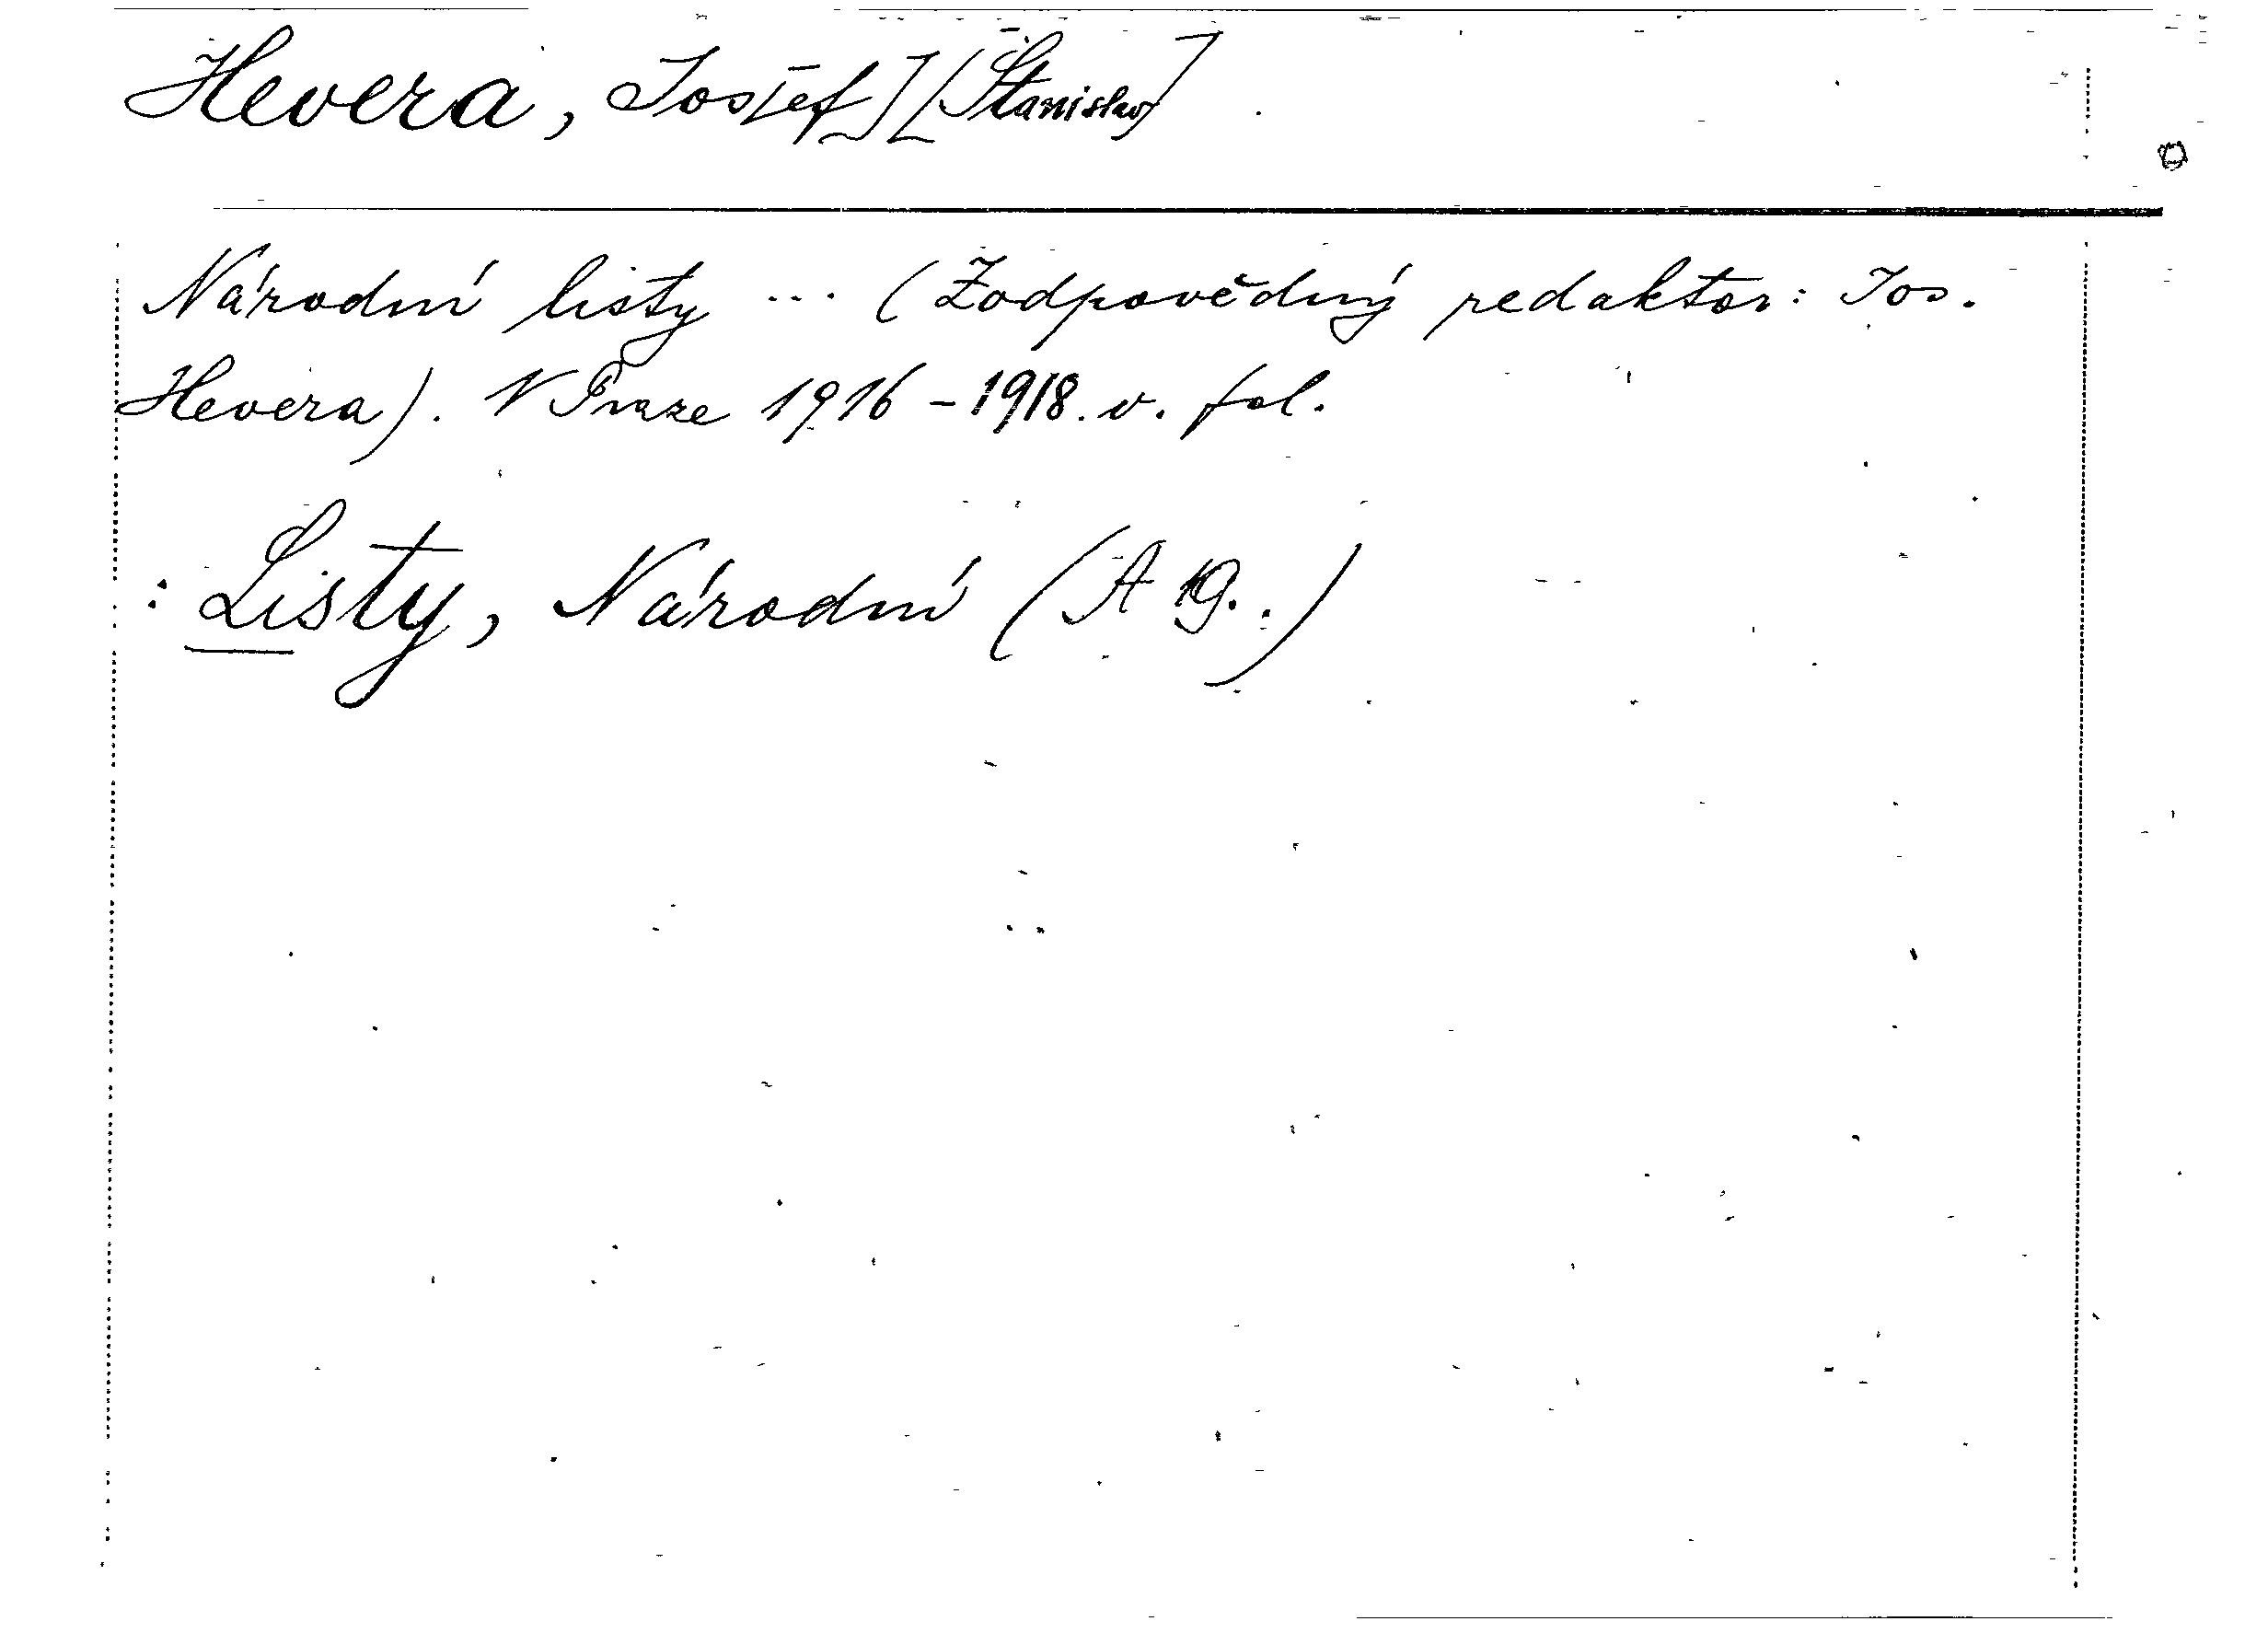 Hevera, Jos[ef] [Stanislav]
Národní listy ... (Zodpovědný redaktor: Jos.
Hevera). V Praze 1916-1918. v. fol.
: Listy, Národní (A 19..)